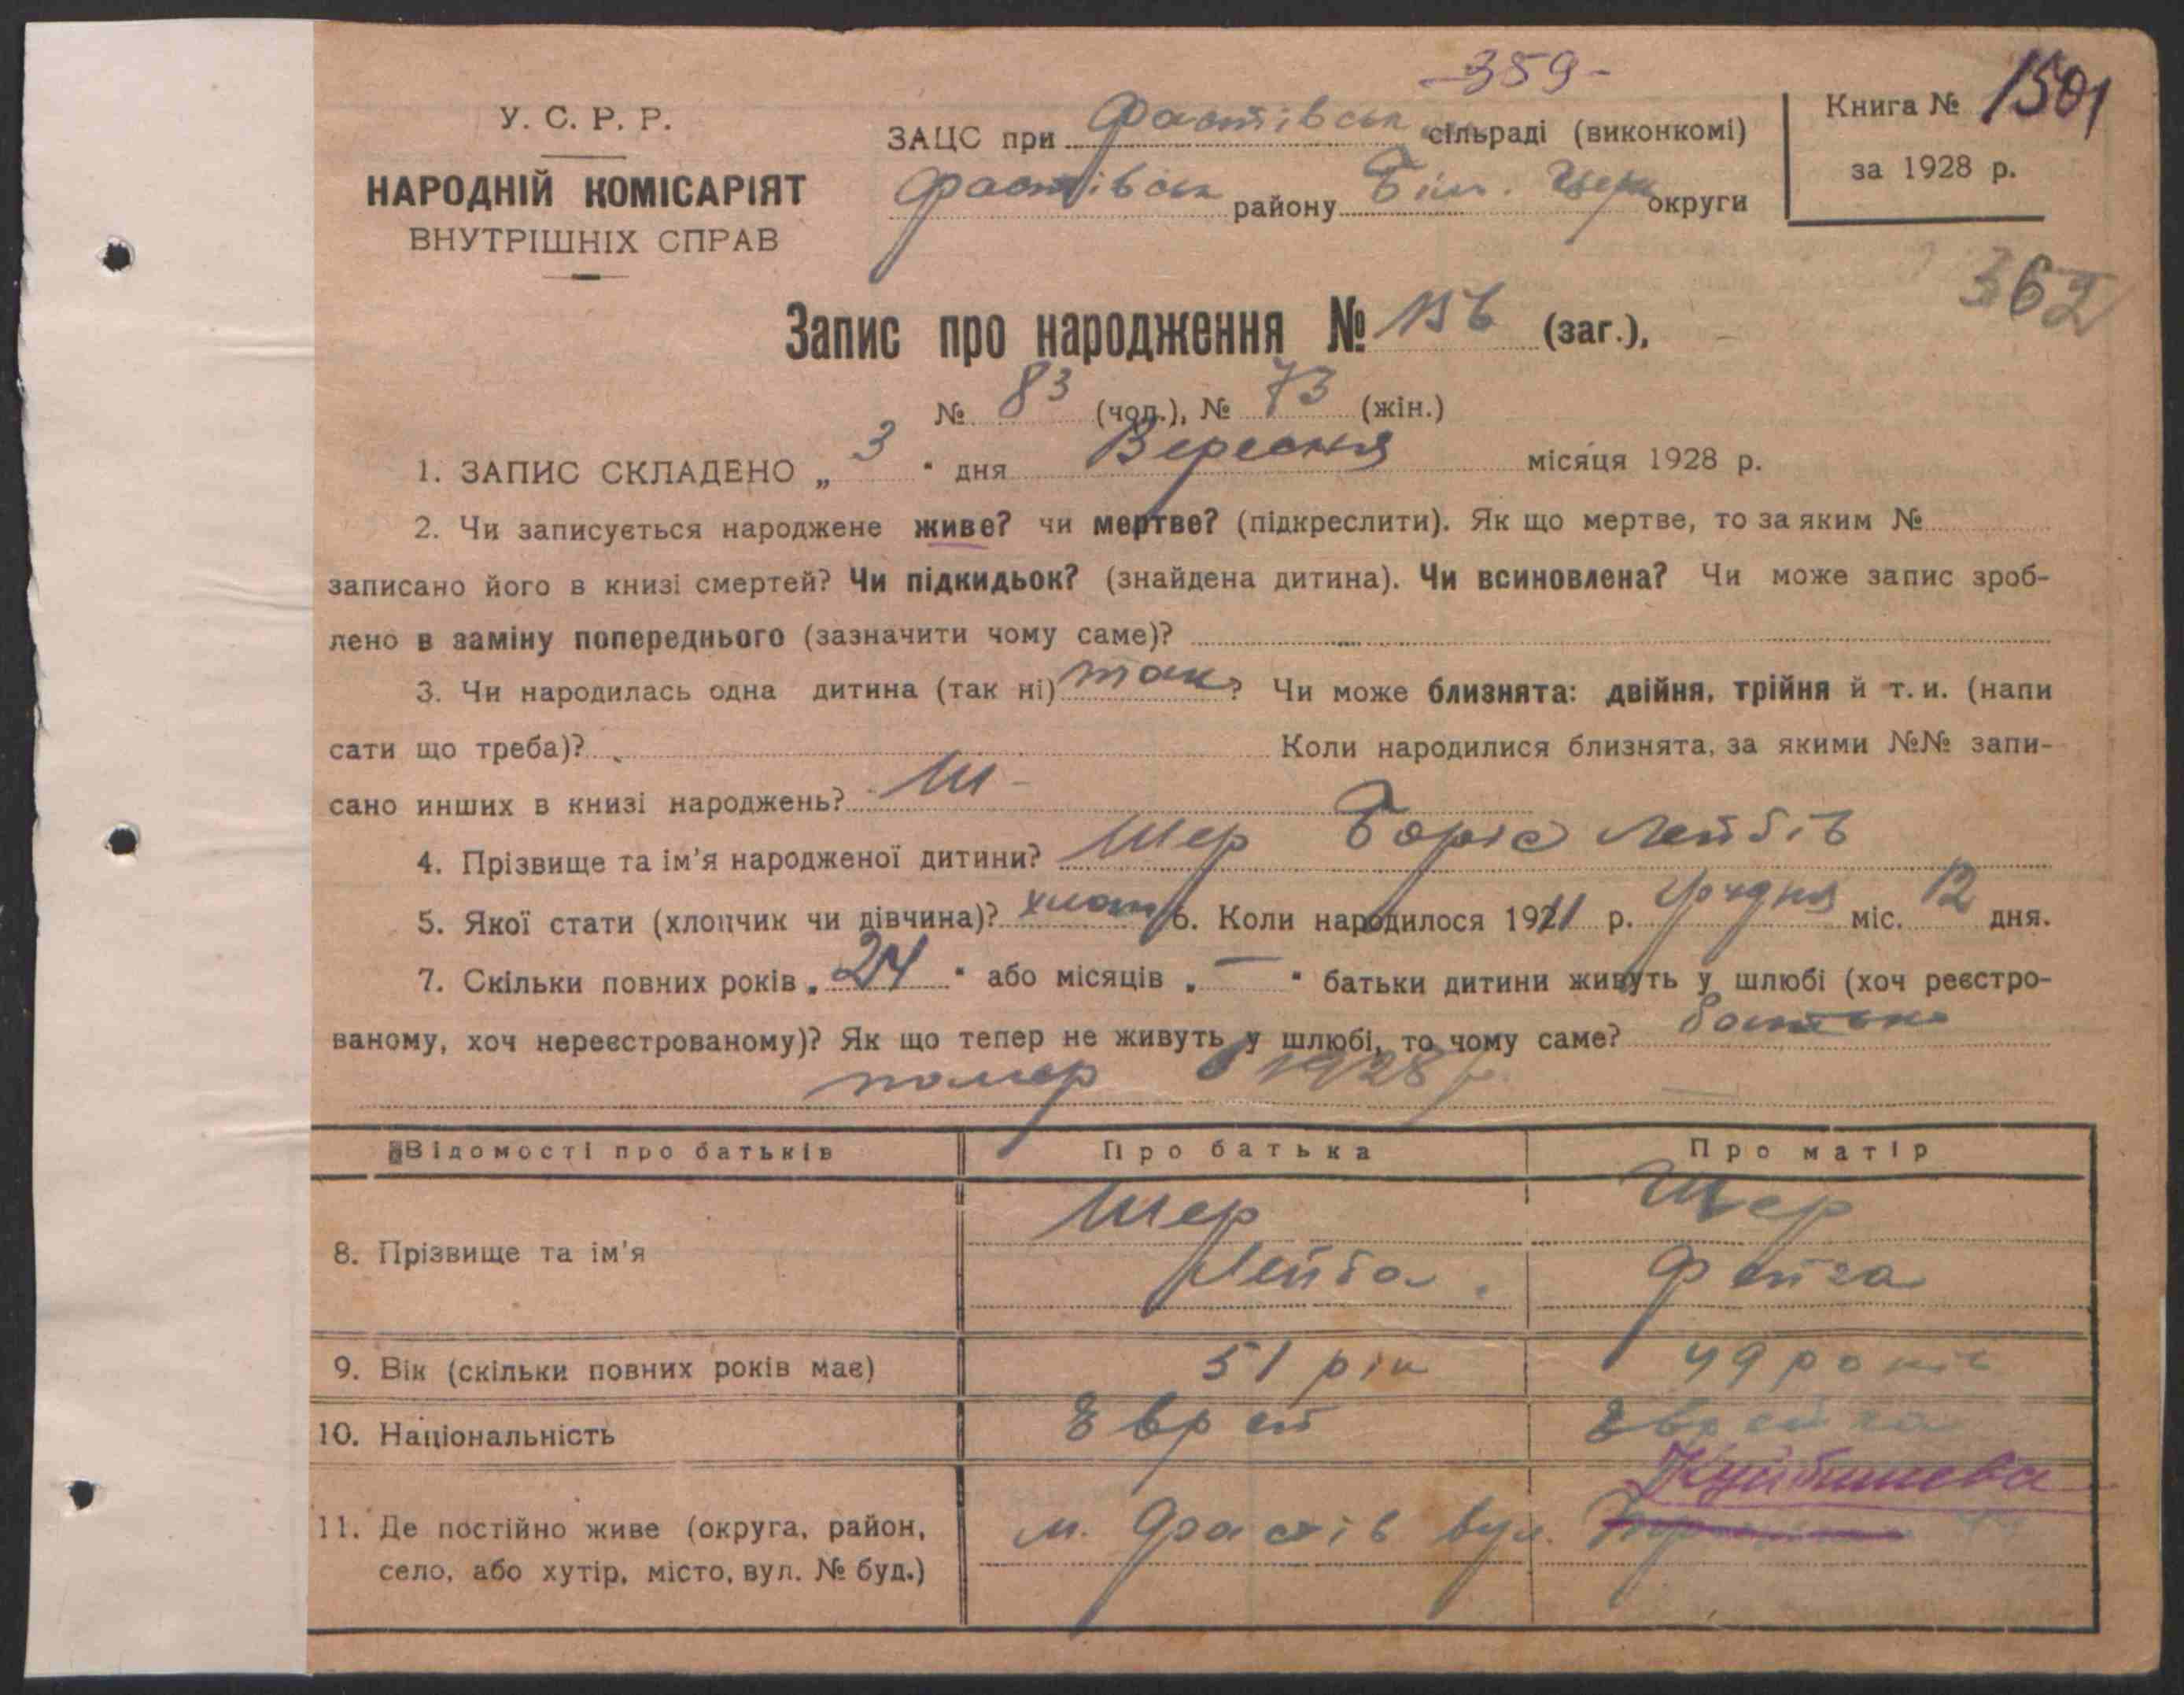 -359-
У. С. Р. Р.
НАРОДНІЙ КОМІСАРІЯТ
ВНУТРІШНІХ СПРАВ
ЗАЦС при Фастівськ сільраді (виконкомі)
Фастівськ району Біл. Церк округи
Книга № 1501
за 1928 р.
362
Запис про народження № 156 (заг.),
№ 83 (чол.), № 73 (жін.)
1. ЗАПИС СКЛАДЕНО „ 3 " дня Вересня місяця 1928 р.
2. Чи записується народжене живе? чи мертве? (підкреслити). Як що мертве, то за яким №
записано його в книзі смертей? Чи підкидьок? (знайдена дитина). Чи всиновлена? Чи може запис зроб-
лено в заміну попереднього (зазначити чому саме)?
3. Чи народилась одна дитина (так ні) так? Чи може близнята: двійня, трійня й т. и. (напи
сати що треба)? Коли народилися близнята, за якими №№ запи-
сано инших в книзі народжень?
4. Прізвище та ім'я народженої дитини? Шер Боріс Лейбів
5. Якої стати (хлопчик чи дівчина)? хлоп 6. Коли народилося 1911 р. Грудня міс. 12 дня.
7. Скільки повних років „ 24 " або місяців „ — " батьки дитини живуть у шлюбі (хоч реєстро-
ваному, хоч нереєстрованому)? Як що тепер не живуть у шлюбі, то чому саме? батько
помер в 1928 р.
Відомості про батьків Про батька Про матір
8. Прізвище та ім'я Шер Лейба. Шер Фейга
9. Вік (скільки повних років має) 51 рік 49 років
10. Національність Єврей Єврейка
Куйбишева
11. Де постійно живе (округа, район, м. Фастів вул.
село, або хутір, місто, вул. № буд.)